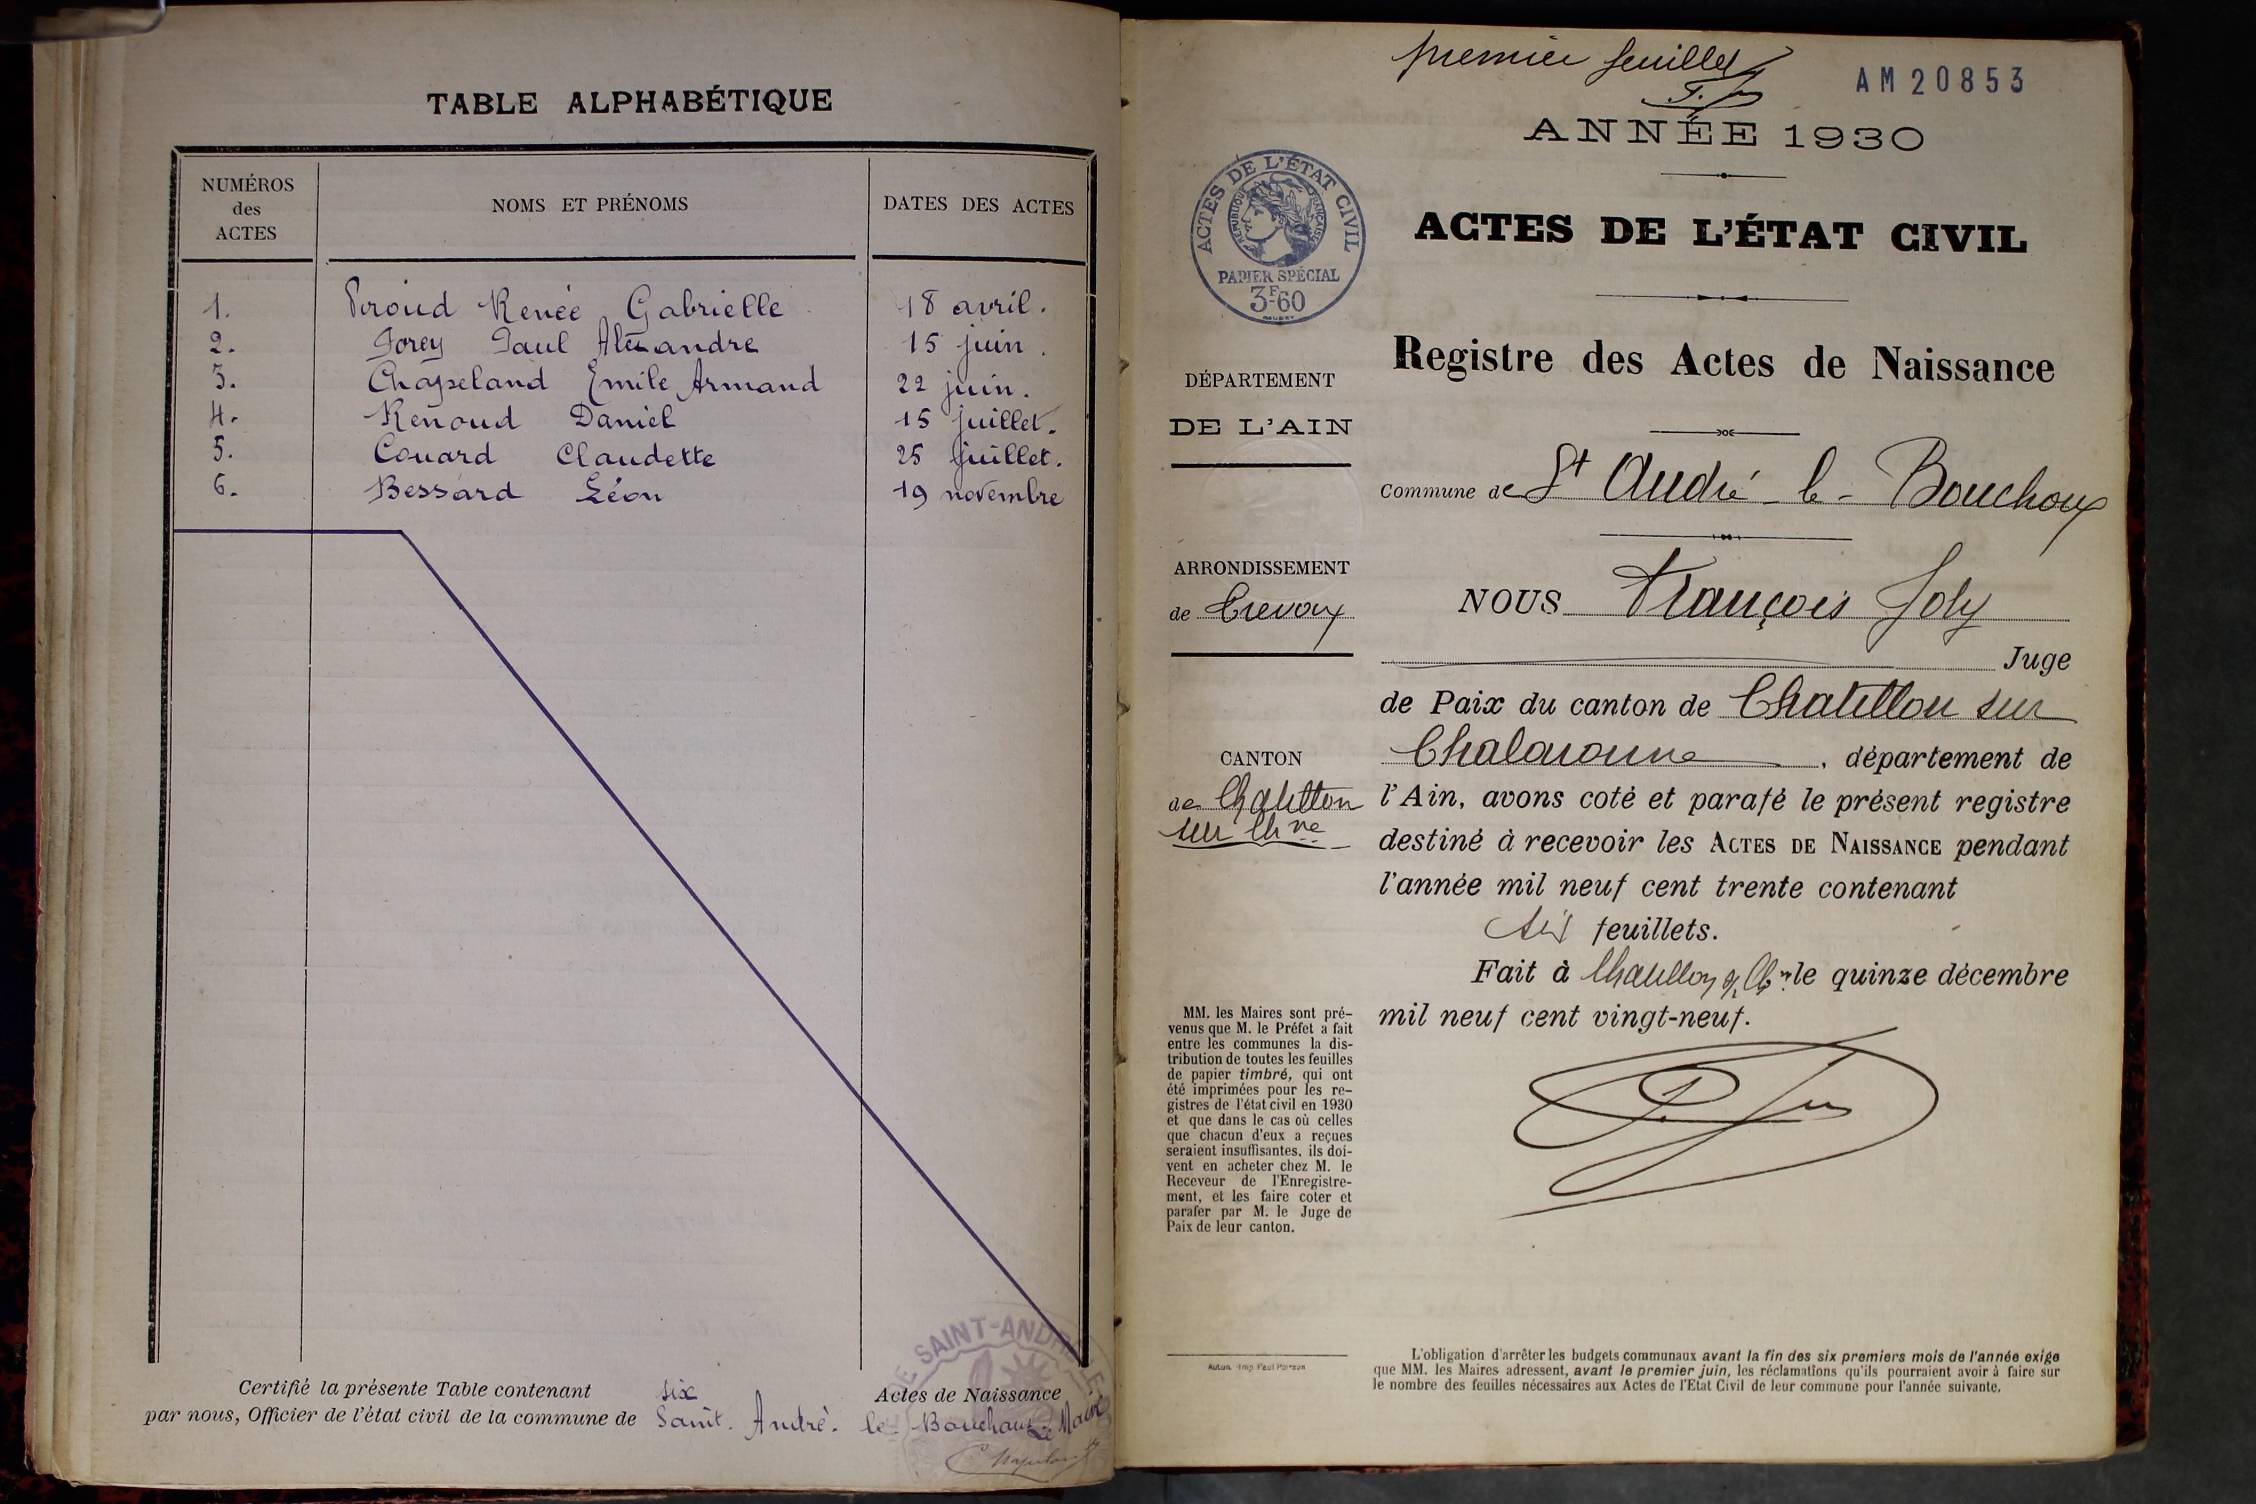 TABLE ALPHABÉTIQUE
NUMÉROS
des
ACTES
NOMS ET PRÉNOMS
DATES DES ACTES
1. Peroud Renée Gabrielle 18 avril.
2. Forey Paul Alexandre 15 juin.
3. Chapeland Emile Armand 22 juin.
4. Renoud Daniel 15 juillet.
5. Couard Claudette 25 juillet.
6. Bessard Léon 19 novembre
Certifié la présente Table contenant six Actes de Naissance
par nous, Officier de l'état civil de la commune de Saint. André. le. Bouchoux Le Maire
DE SAINT-ANDRÉ-LE
premier feuillet
AM 20853
ANNÉE 1930
ACTES DE L'ÉTAT CIVIL
RÉPUBLIQUE FRANÇAISE
PAPIER SPÉCIAL
3F60
ACTES DE L'ÉTAT CIVIL
Registre des Actes de Naissance
DÉPARTEMENT
DE L'AIN
Commune de St André - le - Bouchoux
ARRONDISSEMENT
de Trevoux
NOUS François Joly
Juge
de Paix du canton de Chatillon sur
Chalaronne, département de
CANTON
de Chatillon
sur Chne
l'Ain, avons coté et parafé le présent registre
destiné à recevoir les ACTES DE NAISSANCE pendant
l'année mil neuf cent trente contenant
six feuillets.
Fait à Chatillon s/ Chne le quinze décembre
mil neuf cent vingt-neuf.
MM. les Maires sont pré-
venus que M. le Préfet a fait
entre les communes la dis-
tribution de toutes les feuilles
de papier timbré, qui ont
été imprimées pour les re-
gistres de l'état civil en 1930
et que dans le cas où celles
que chacun d'eux a reçues
seraient insuffisantes, ils doi-
vent en acheter chez M. le
Receveur de l'Enregistre-
ment, et les faire coter et
parafer par M. le Juge de
Paix de leur canton.
L'obligation d'arrêter les budgets communaux avant la fin des six premiers mois de l'année exige
que MM. les Maires adressent, avant le premier juin, les réclamations qu'ils pourraient avoir à faire sur
le nombre des feuilles nécessaires aux Actes de l'Etat Civil de leur commune pour l'année suivante.